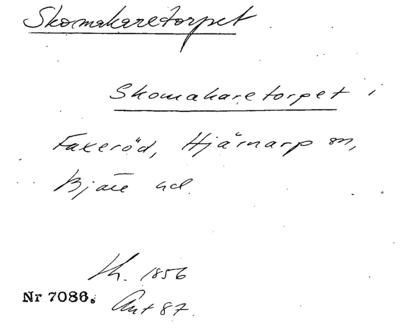 Skomakaretorpet
Skomakaretorpet i
Faxeröd, Hjärnarp sn,
Bjäre hd.
Lh. 1856
Nr 7086. Ant 87.